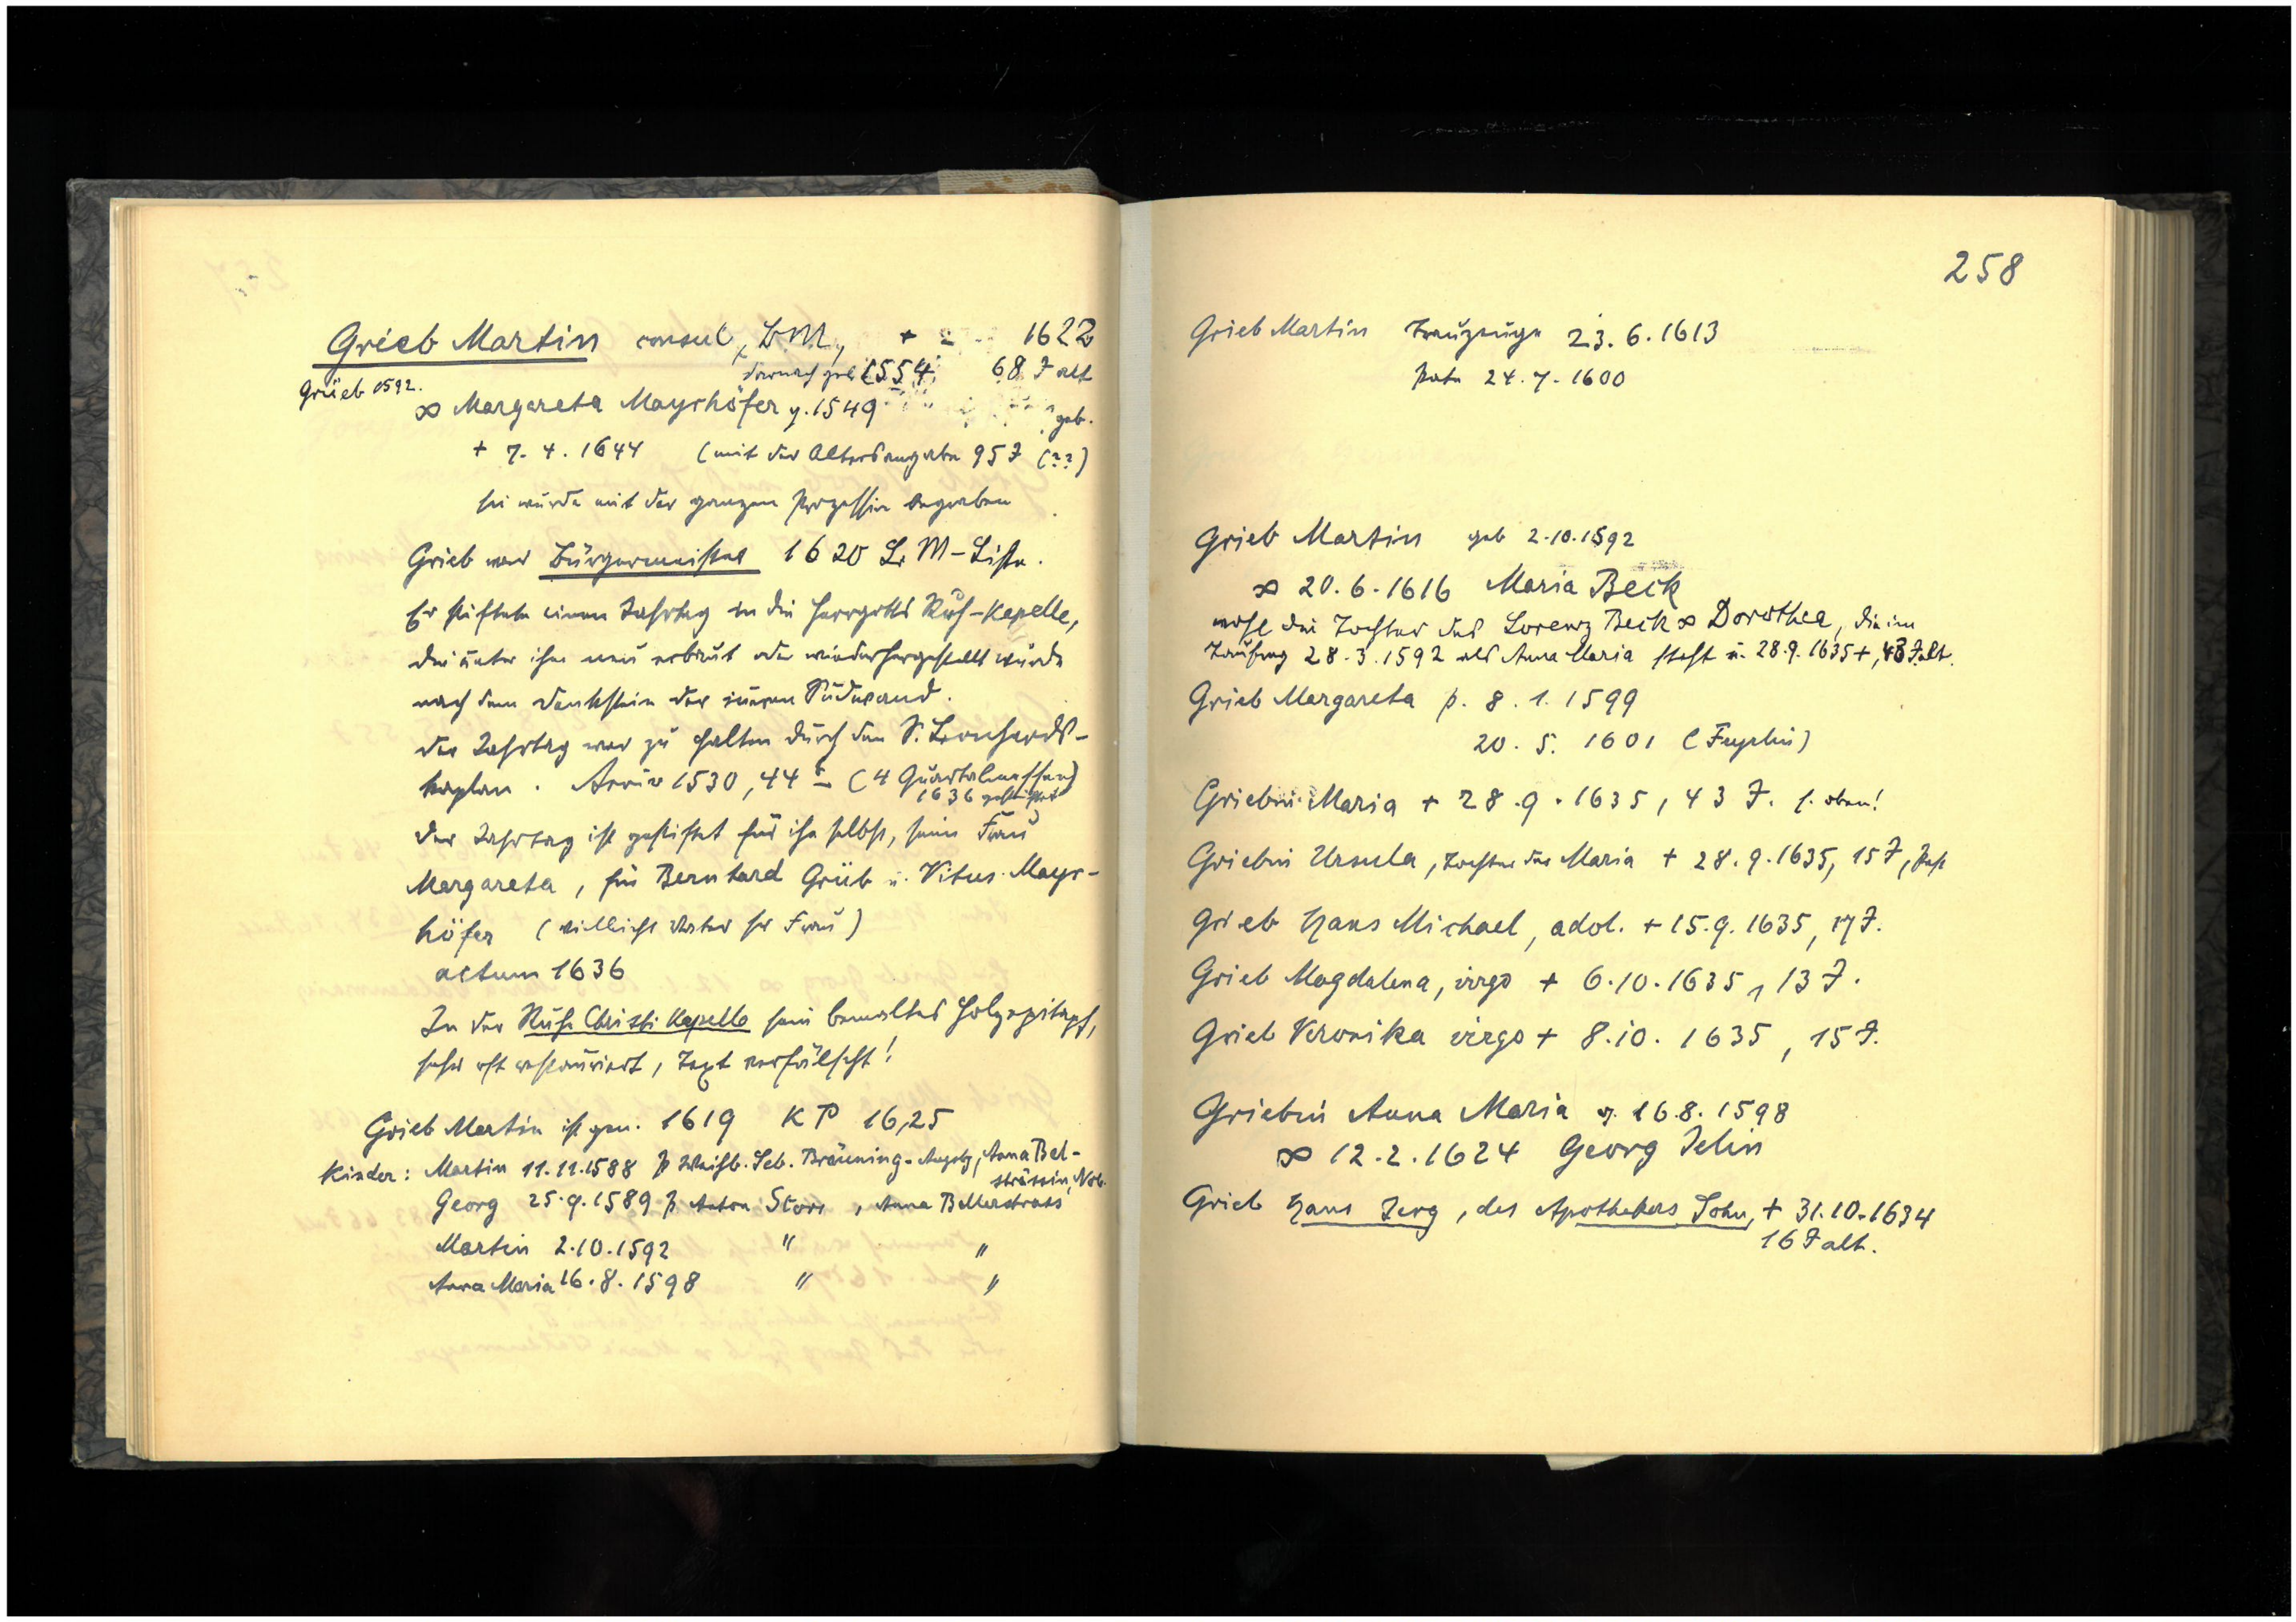 Grieb Martin consul, BM, + 1622
darnach geb 1554, 68 J alt
Grüeb 1592.
∞ Margareta Mayrhöfer g. 1549 geb.
+ 7. 4. 1644 (mit der Altersangabe 95 J (??)
sie wurde mit der ganzen Prozession begraben
Grieb war Bürgermeister 1620 L. M-Liste.
Er stiftete einen Jahrtag in die Herrgotts Ruh-Kapelle,
die unter ihm neu erbaut oder wiederhergestellt wurde
nach dem Denkstein der Südwand.
Der Jahrtag war zu halten durch den S. Leonhards-
kaplan. 1530, 44 (4 Quartalmessen)
1636 gestiftet
Der Jahrtag ist gestiftet für ihn selbst, seine Frau
Margareta, für Bernhard Grüb u. Vitus Mayr-
höfer (vielleicht Vater sr Frau)
actum 1636
In der Ruhe Christi Kapelle sein bemaltes Holzepitaph,
sehr oft restauriert, Text verfälscht!
Grieb Martin ist gen. 1619 KP 16,25
Kinder: Martin 11.11.1588 p Seb. Bräuning, Anna Bel-
strässin, Nob.
Georg 25.9.1589 p Anton Storr, Anna Bellerstrass
Martin 2.10.1592 " "
Anna Maria 16.8.1598 " "
258
Grieb Martin Trauzeuge 23.6.1613
Pate 24.7.1600
Grieb Martin geb 2.10.1592
∞ 20.6.1616 Maria Beck
wohl die Tochter des Lorenz Beck ∞ Dorothea, die im
Taufreg 28.3.1592 als Anna Maria steht u. 28.9.1635 +, 43 J alt.
Grieb Margareta p. 8.1.1599
20.5.1601
Griebin Maria + 28.9.1635, 43 J. s. oben!
Griebin Ursula, Tochter der Maria + 28.9.1635, 15 J, Pest
Grieb Hans Michael, adol. + 15.9.1635, 17 J.
Grieb Magdalena, virgo + 6.10.1635, 13 J.
Grieb Veronika virgo + 8.10.1635, 15 J.
Griebin Anna Maria g. 16.8.1598
∞ 12.2.1624 Georg Jelin
Grieb Hans Jerg, des Apothekers Sohn, + 31.10.1634
16 J alt.